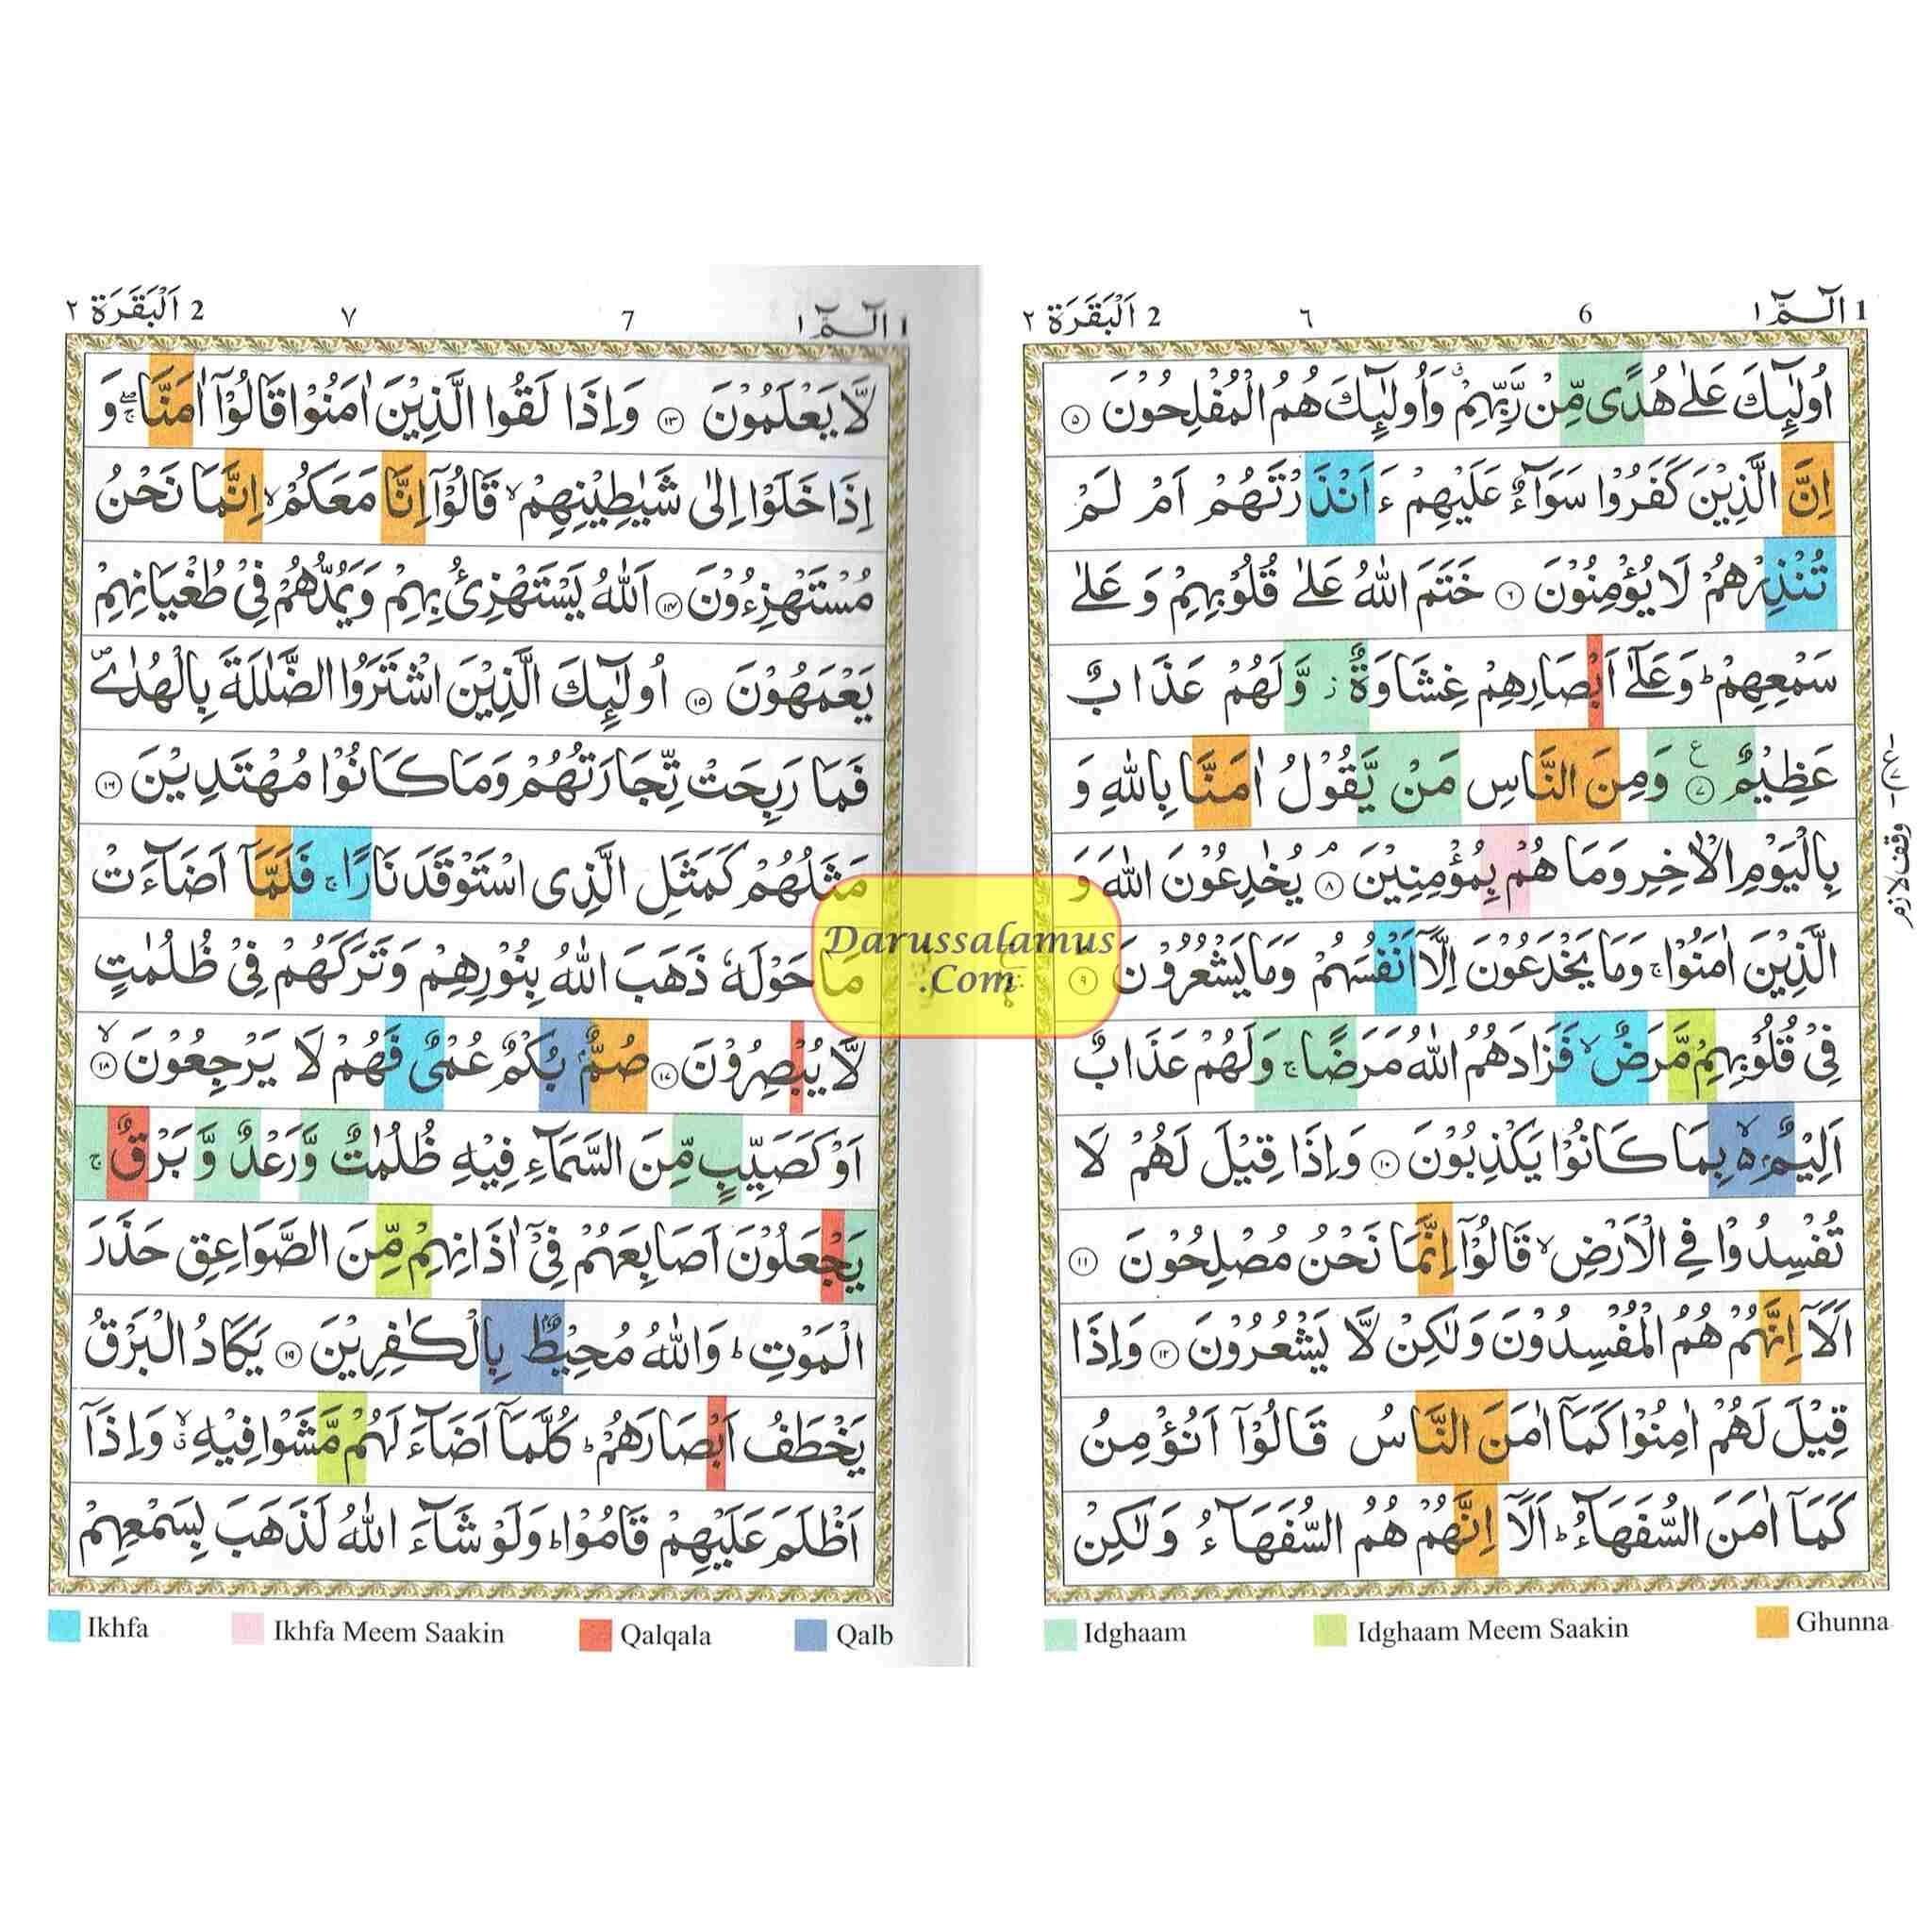 1 الٓـمّٓ ١ 6 ٦ 2 اَلْبَقَرَة ٢
اُولٰٓئِكَ عَلٰى هُدًى مِّنْ رَّبِّهِمْ ۗ وَاُولٰٓئِكَ هُمُ الْمُفْلِحُوْنَ ٥
اِنَّ الَّذِيْنَ كَفَرُوْا سَوَآءٌ عَلَيْهِمْ ءَاَنْذَرْتَهُمْ اَمْ لَمْ
تُنْذِرْهُمْ لَا يُؤْمِنُوْنَ ٦ خَتَمَ اللّٰهُ عَلٰى قُلُوْبِهِمْ وَ عَلٰى
سَمْعِهِمْ ؕ وَعَلٰٓى اَبْصَارِهِمْ غِشَاوَةٌ ز وَّلَهُمْ عَذَابٌ
عَظِيْمٌ ٧ ع وَمِنَ النَّاسِ مَنْ يَّقُوْلُ اٰمَنَّا بِاللّٰهِ وَ
بِالْيَوْمِ الْاٰخِرِ وَمَا هُمْ بِمُؤْمِنِيْنَ ۘ ٨ يُخٰدِعُوْنَ اللّٰهَ وَ
الَّذِيْنَ اٰمَنُوْا ۚ وَمَا يَخْدَعُوْنَ اِلَّآ اَنْفُسَهُمْ وَمَا يَشْعُرُوْنَ ٩
فِيْ قُلُوْبِهِمْ مَّرَضٌ ۙ فَزَادَهُمُ اللّٰهُ مَرَضًا ۚ وَلَهُمْ عَذَابٌ
اَلِيْمٌ ۙ۬ بِمَا كَانُوْا يَكْذِبُوْنَ ١٠ وَاِذَا قِيْلَ لَهُمْ لَا
تُفْسِدُوْا فِي الْاَرْضِ ۙ قَالُوْٓا اِنَّمَا نَحْنُ مُصْلِحُوْنَ ١١
اَلَآ اِنَّهُمْ هُمُ الْمُفْسِدُوْنَ وَلٰكِنْ لَّا يَشْعُرُوْنَ ١٢ وَاِذَا
قِيْلَ لَهُمْ اٰمِنُوْا كَمَآ اٰمَنَ النَّاسُ قَالُوْٓا اَنُؤْمِنُ
كَمَآ اٰمَنَ السُّفَهَآءُ ؕ اَلَآ اِنَّهُمْ هُمُ السُّفَهَآءُ وَلٰكِنْ
Idghaam Idghaam Meem Saakin Ghunna
وقف لازم
1 الٓـمّٓ ١ 7 ٧ 2 اَلْبَقَرَة ٢
لَّا يَعْلَمُوْنَ ١٣ وَاِذَا لَقُوا الَّذِيْنَ اٰمَنُوْا قَالُوْٓا اٰمَنَّا ۖۚ وَ
اِذَا خَلَوْا اِلٰى شَيٰطِيْنِهِمْ ۙ قَالُوْٓا اِنَّا مَعَكُمْ ۙ اِنَّمَا نَحْنُ
مُسْتَهْزِءُوْنَ ١٤ اَللّٰهُ يَسْتَهْزِئُ بِهِمْ وَيَمُدُّهُمْ فِيْ طُغْيَانِهِمْ
يَعْمَهُوْنَ ١٥ اُولٰٓئِكَ الَّذِيْنَ اشْتَرَوُا الضَّلٰلَةَ بِالْهُدٰى ۪
فَمَا رَبِحَتْ تِّجَارَتُهُمْ وَمَا كَانُوْا مُهْتَدِيْنَ ١٦
مَثَلُهُمْ كَمَثَلِ الَّذِى اسْتَوْقَدَ نَارًا ۚ فَلَمَّآ اَضَآءَتْ
مَا حَوْلَهٗ ذَهَبَ اللّٰهُ بِنُوْرِهِمْ وَتَرَكَهُمْ فِيْ ظُلُمٰتٍ
لَّا يُبْصِرُوْنَ ١٧ صُمٌّۢ بُكْمٌ عُمْىٌ فَهُمْ لَا يَرْجِعُوْنَ ۙ ١٨
اَوْ كَصَيِّبٍ مِّنَ السَّمَآءِ فِيْهِ ظُلُمٰتٌ وَّرَعْدٌ وَّ بَرْقٌ ۚ
يَجْعَلُوْنَ اَصَابِعَهُمْ فِيْٓ اٰذَانِهِمْ مِّنَ الصَّوَاعِقِ حَذَرَ
الْمَوْتِ ؕ وَاللّٰهُ مُحِيْطٌۢ بِالْكٰفِرِيْنَ ١٩ يَكَادُ الْبَرْقُ
يَخْطَفُ اَبْصَارَهُمْ ؕ كُلَّمَآ اَضَآءَ لَهُمْ مَّشَوْا فِيْهِ ۙ وَاِذَآ
اَظْلَمَ عَلَيْهِمْ قَامُوْا ؕ وَلَوْ شَآءَ اللّٰهُ لَذَهَبَ بِسَمْعِهِمْ
Ikhfa Ikhfa Meem Saakin Qalqala Qalb
Darussalamus
.Com